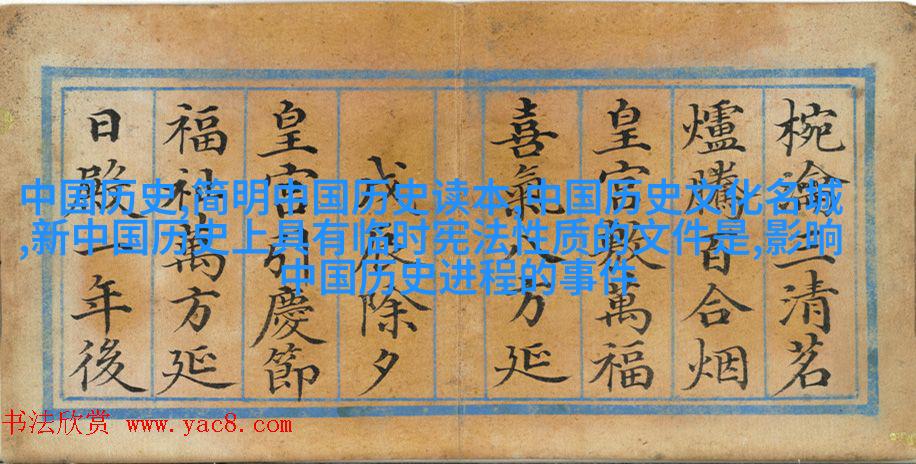 椀瀹三清茗
爐騰百合烟
皇宮敷萬福
喜氣八方延
戊辰除夕
皇宮引慶節
福祉萬方延
日一年後
中国历史,简明中国历史读本,中国历史文化名城
,新中国历史上具有临时宪法性质的文件是,影响
中国历史进程的事件
书法欣赏 www.yac8.com